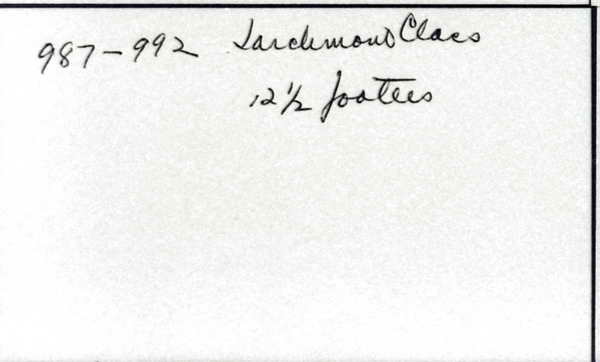 987-992 Larchmont Class
12 1/2 footers